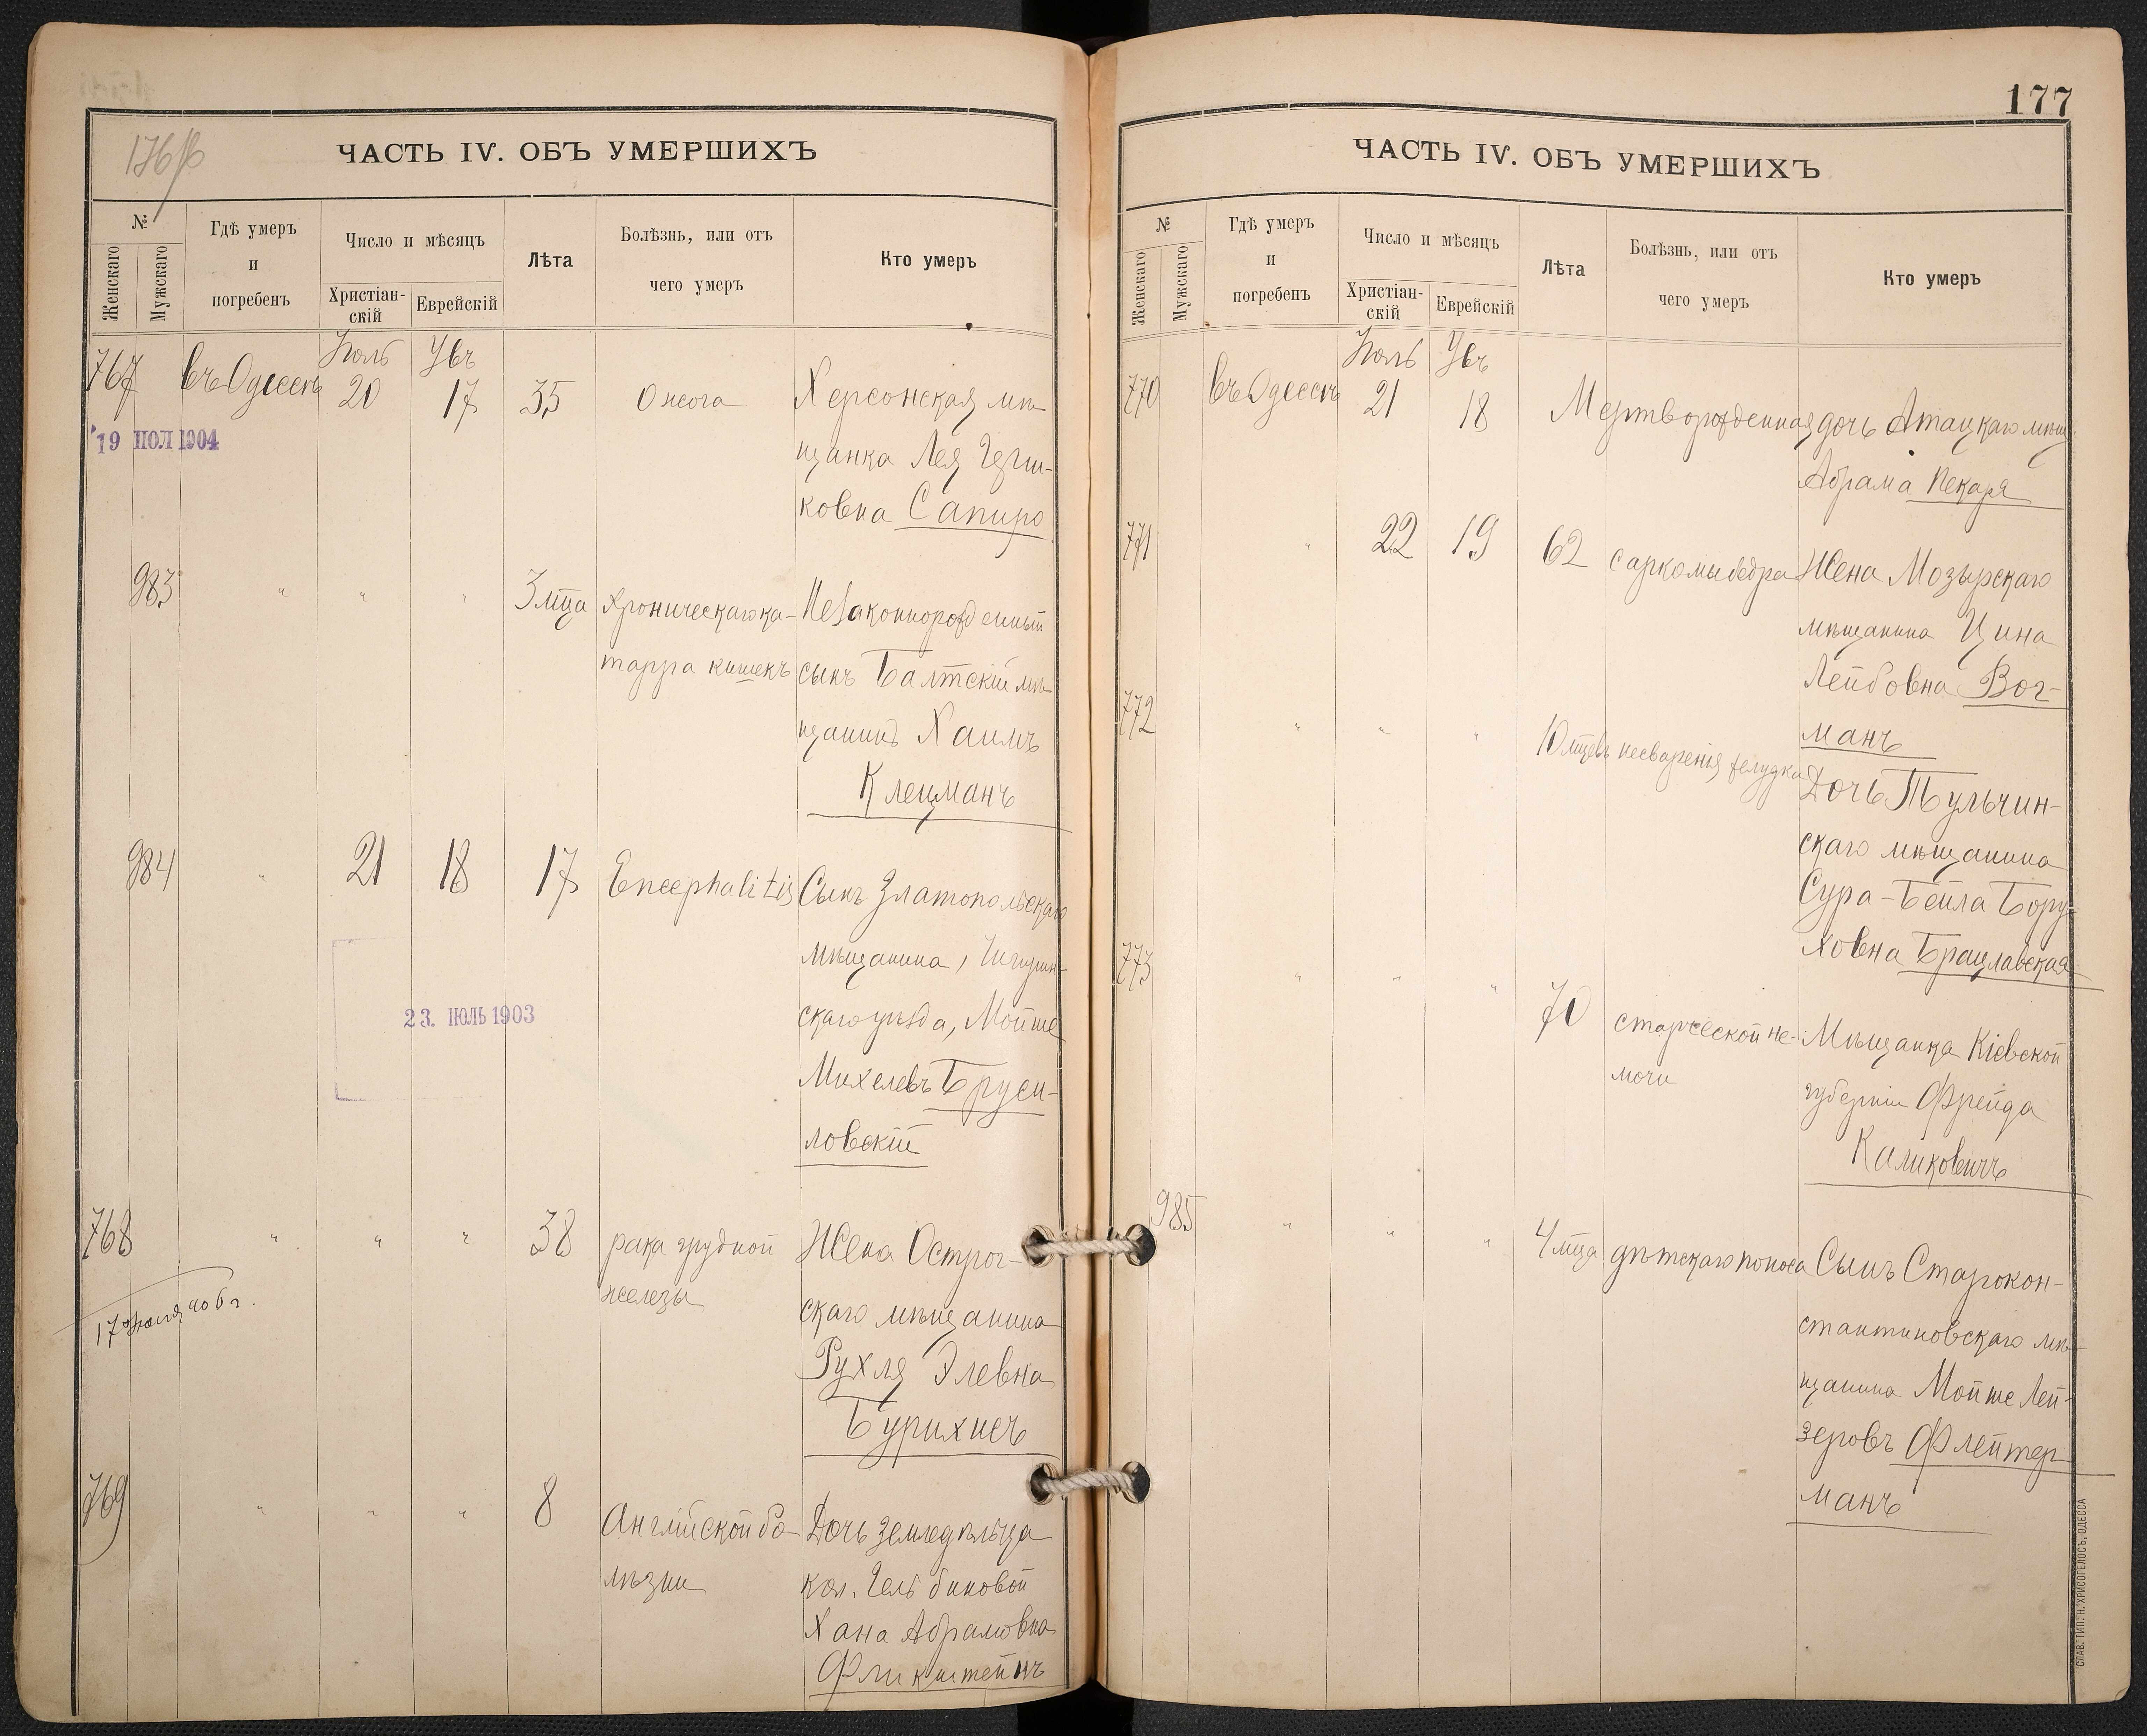 176 об
ЧАСТЬ IV. ОБЪ УМЕРШИХЪ
№
Женскаго
Мужскаго
Гдѣ умеръ
и
погребенъ
Число и мѣсяцъ
Христіан-
скій
Еврейскій
Лѣта
Болѣзнь, или отъ
чего умеръ
Кто умеръ
Іюль Убъ
767 въ Одессѣ 20 17 35 Ожога Херсонская мѣ-
19 ІЮЛ 1904
щанка Лея Герш-
ковна Сапиро
983 " " " 3 мца Хроническаго ка- Незаконнорожденный
тарра кишекъ сынъ Балтскій мѣ-
щанинъ Хаимъ
Клецманъ
984 " 21 18 17 Encephalitis Сынъ Златопольскаго
мѣщанина, Чигирин-
23. ІЮЛЬ 1903
скаго уѣзда, Мойше
Михелевъ Бруси-
ловскій
768 " " " 38 рака грудной Жена Острог-
железы
17 Іюля 906 г.
скаго мѣщанина
Рухля Элевна
Бурихисъ
769 " " " 8 Англійской бо- Дочь земледѣльца
лѣзни кол. Гельбиновой
Хана Абрамовна
Фликштейнъ
177
ЧАСТЬ IV. ОБЪ УМЕРШИХЪ
№
Женскаго
Мужскаго
Гдѣ умеръ
и
погребенъ
Число и мѣсяцъ
Христіан-
скій
Еврейскій
Лѣта
Болѣзнь, или отъ
чего умеръ
Кто умеръ
Іюль Убъ
770 въ Одессѣ 21 18 Мертворожденная дочь Атацкаго мѣщ.
Абрама Пекаря
771 " 22 19 62 саркомы бедра Жена Мозырскаго
мѣщанина Цина
Лейбовна Вог-
манъ
772 " " " 10 мцевъ несваренія желудка Дочь Тульчин-
скаго мѣщанина
Сура-Бейла Бору-
ховна Брацлавская
773 " " " 70 старческой не- Мѣщанка Кіевской
мочи губерніи Фрейда
Каликовичъ
985 " " " 4 мца дѣтскаго поноса Сынъ Старокон-
стантиновскаго мѣ-
щанина Мойше Лей-
зеровъ Флейтер-
манъ
СЛАВ. ТИП. Н. ХРИСОГЕЛОСЪ, ОДЕССА